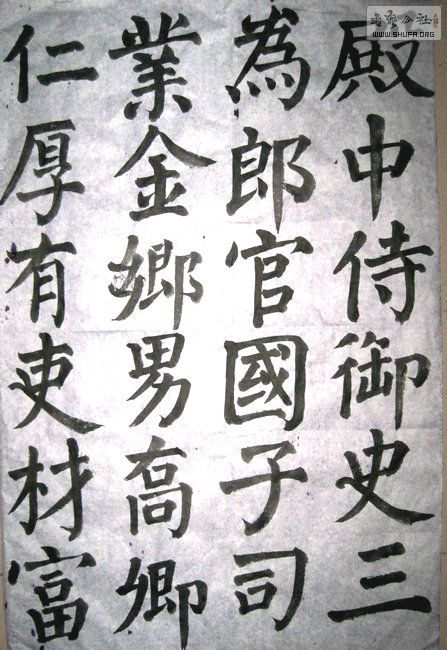 殿中侍御史三
為郎官國子司
業金鄉男高卿
仁厚有吏材富
書藝公社
WWW.SHUFA.ORG